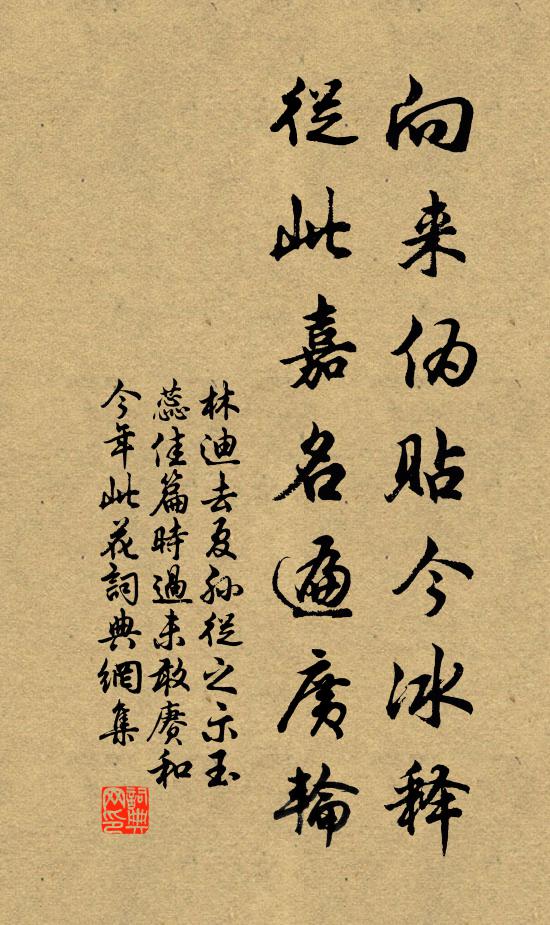 向来伪贴今冰释
從此嘉名遍廣輪
林迪去夏孙從之示玉
蕊佳篇時過未敢赓和
今年此花詞典網集
詞典網印